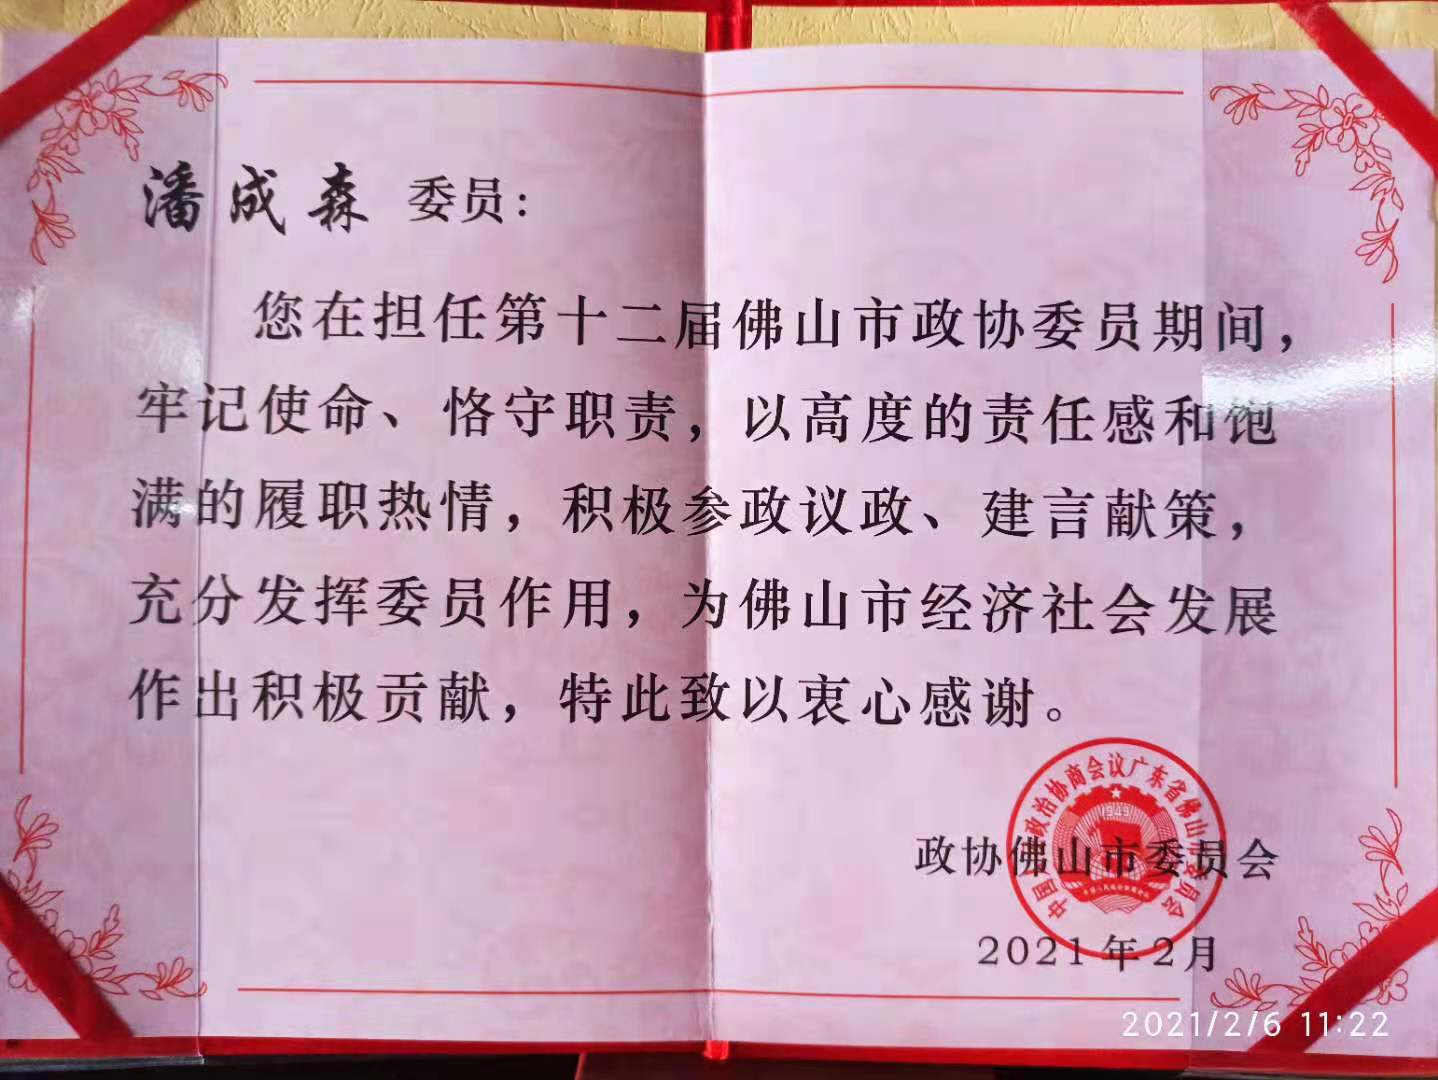 潘成森 委员：
您在担任第十二届佛山市政协委员期间，
牢记使命、恪守职责，以高度的责任感和饱
满的履职热情，积极参政议政、建言献策，
充分发挥委员作用，为佛山市经济社会发展
作出积极贡献，特此致以衷心感谢。
政协佛山市委员会
2021年2月
中国 政治协商会议广东省佛山 委员会
1949
2021/2/6 11:22